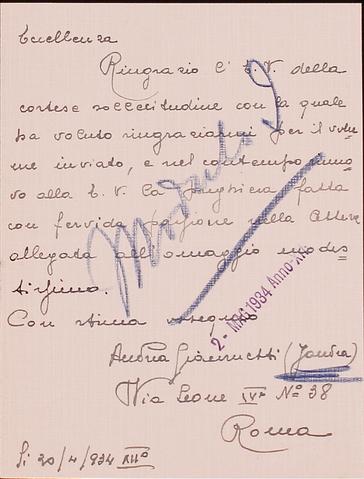 Eccellenza
Ringrazio l'E. V. della
cortese sollecitudine con la quale
ha voluto ringraziarmi per il volu-
me inviato, e nel contempo rinno
vo alla E. V. la preghiera fatta
con fervida passione nella lettera
allegata all'omaggio modes
tissimo.
Con stima ossequio
2 - MAG 1934 Anno XII
Andrea Giannetti (Jandra)
Via Leone IV° N° 38
Roma
Lì 30/4/934 XII°